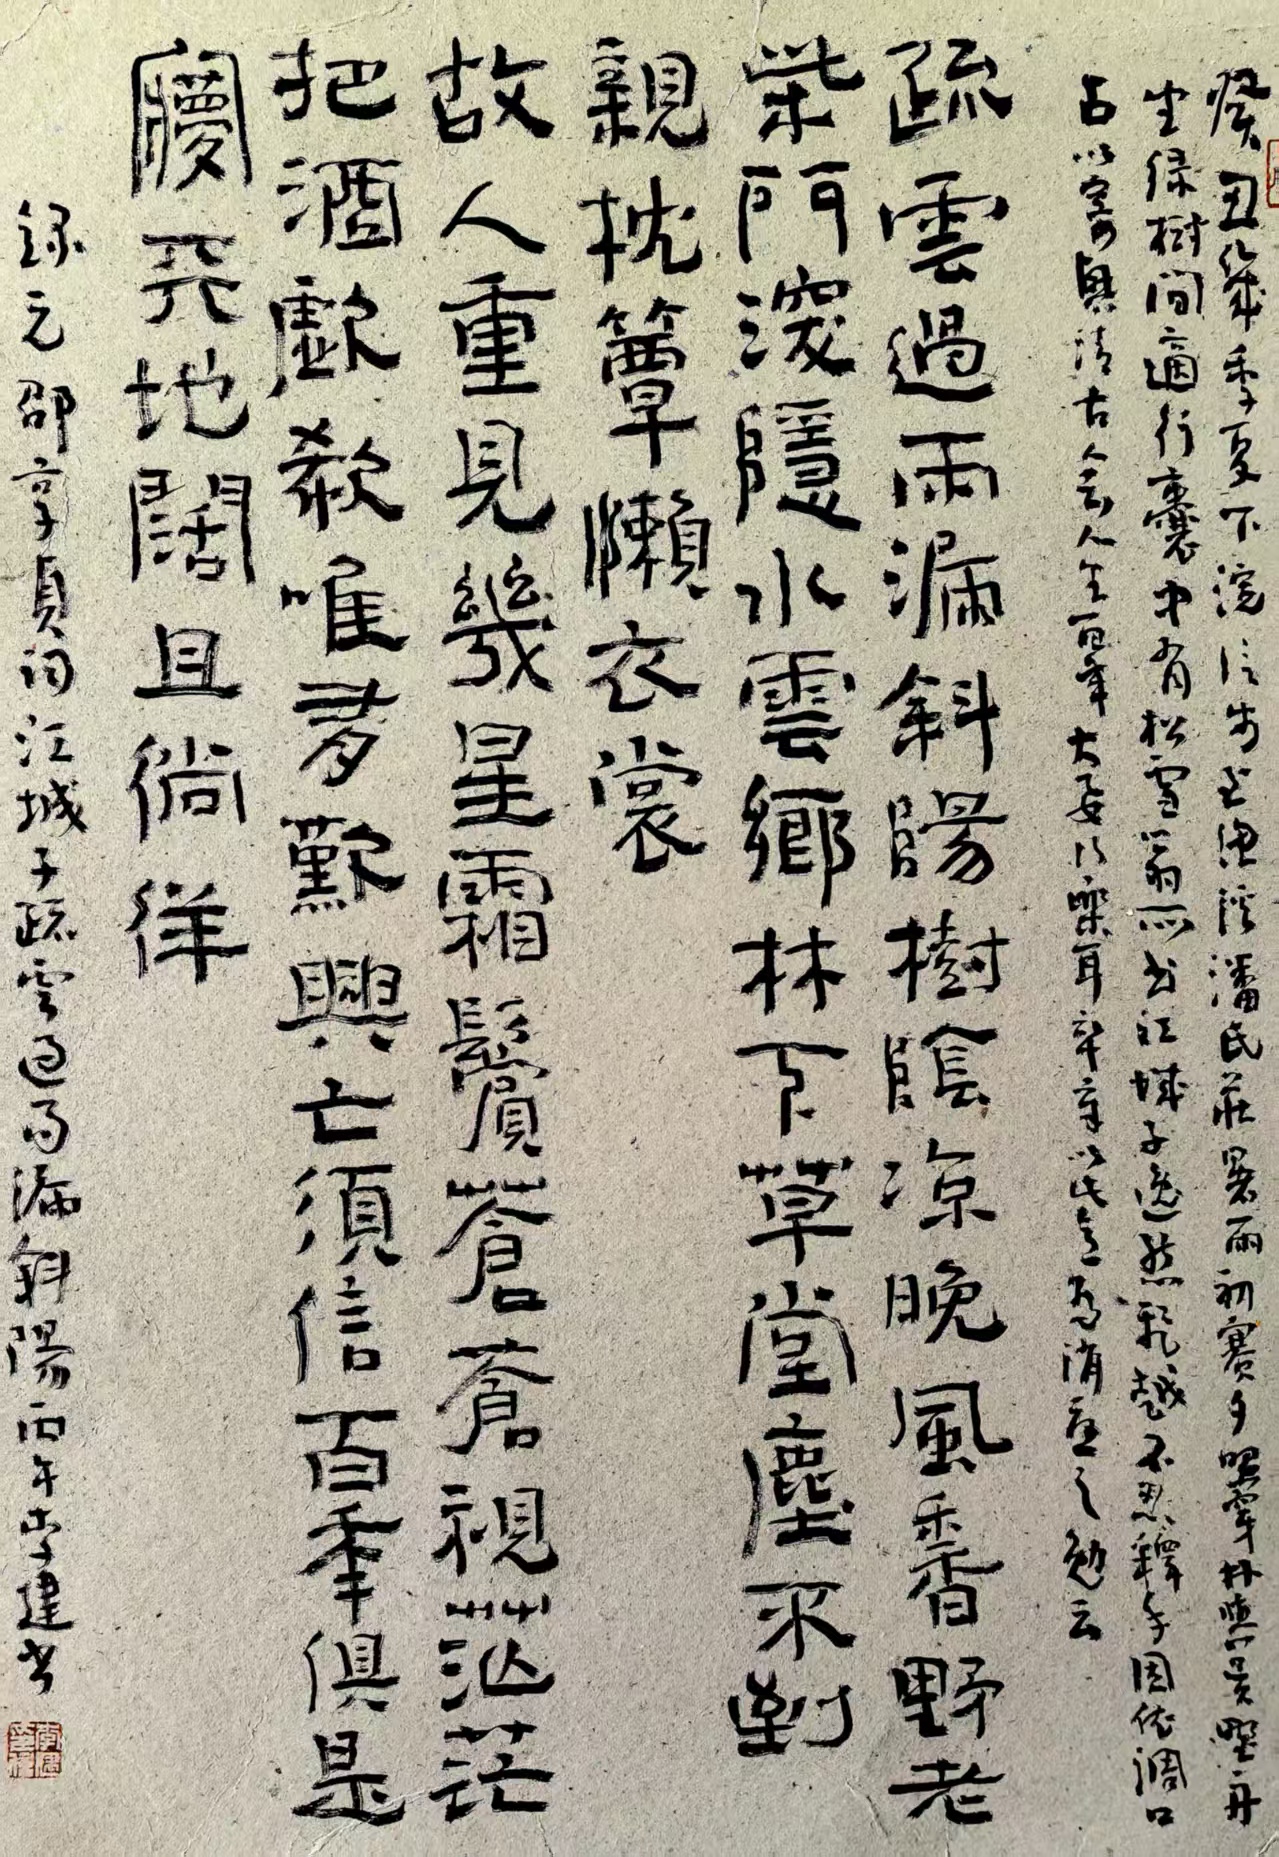 癸丑歲季夏下浣信步至漁溪潘氏莊暑雨初霽夕照穿林與吳野舟
坐緑樹間適行囊中有松雪翁所書江城子逸態飛越不忍釋手因依調口
占以寄興清古會人生百年大要行樂耳卒章以此意為消憂之勉云
疏雲過雨漏斜陽樹陰涼晚風香野老
柴門深隱水雲鄉林下草堂塵不到
親枕簟懶衣裳
故人重見幾星霜鬢蒼蒼視茫茫
把酒歔欷唯有歎興亡須信百年俱是
夢天地闊且徜徉
錄元邵亨貞詞江城子疏雲過雨漏斜陽丙午李建書